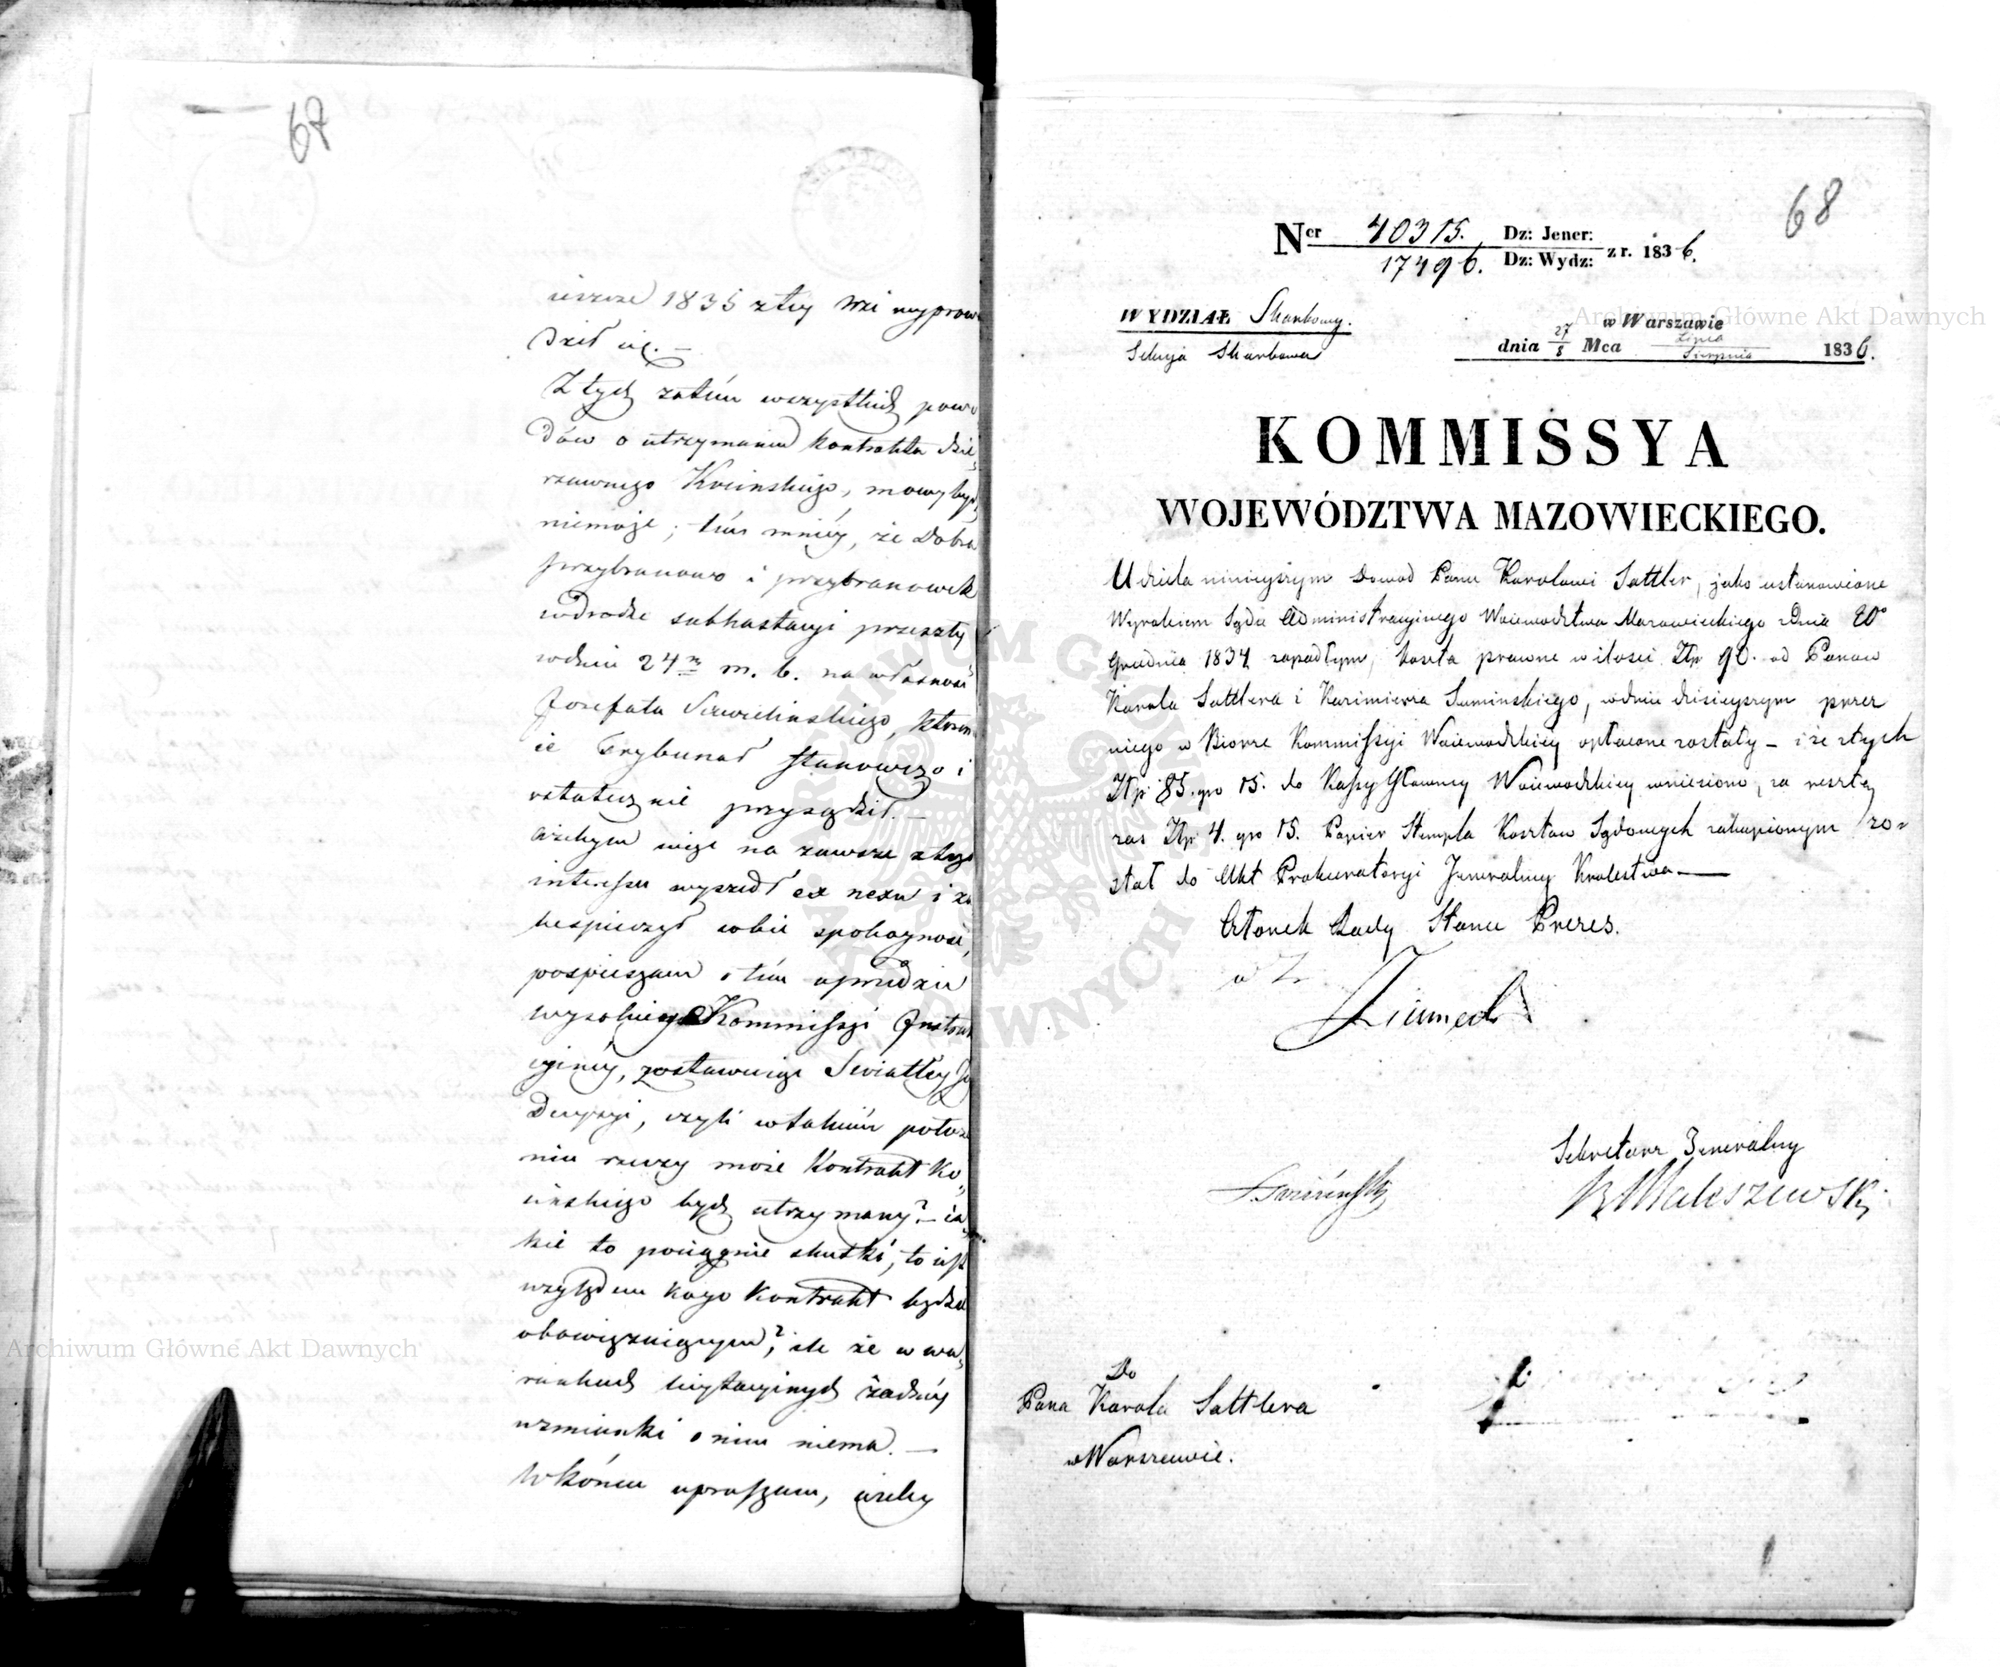 67
ieszcze 1835 z tey Wsi wyprow
dził się. —
Z tych zatém wszystkich powo
dów o utrzymaniu kontraktu dzie-
rzawnego Kocinskiego, mowy bydź
niemoże; tém mniéy, że Dobra
Przybranowo i przybranowek
w drodze subhastacyi przeszły
w dniu 24m m. b. na własność
Jozefata Szewelinskiego, którem
ie Trybunał stanowczo i
ostatecznie przysądził. —
Ażebym więc na zawsze z tego
interessu wyszedł ex nexu i za
bespieczył sobie spokoyność,
pospieszam o tém uprzedzić
wysokiey Kommissyi Instruk
cyinéy, zostawuiąc Swiatłey Jey
Decyzyi, czyli w takiém położe
niu rzeczy może Kontrakt Ko-
cinskiego bydź utrzymany? — ia-
kie to pociągnie skutki, to iest
względem kogo Kontrakt będzie
obowięzuiącym?, ile że w wa-
runkach licytacyinych żadnéy
wzmianki o nim niema. —
W końcu upraszam, ażeby
68
Ner 40315. Dz: Jener:
17496. Dz: Wydz: z r. 1836.
WYDZIAŁ Skarbowy.
Sekcja Skarbowa
w Warszawie
dnia 27/8 Mca Lipca/Sierpnia 1836.
KOMMISSYA
WOJEWÓDZTWA MAZOWIECKIEGO.
Udziela ninieyszym Dowod Panu Karolowi Sattler, jako ustanowione
Wyrokiem Sądu Administracyinego Woiewodztwa Mazowieckiego z Dnia 20o
Grudnia 1834 zapadłym, koszta prawne w ilosci Złp 90. od Panow
Karola Sattlera i Kazimierza Suminskiego, w dniu dzisieyszym przez
niego w Biorze Kommissyi Woiewodzkiey opłacone zostały — i że z tych
Złp 85. gro 15. do Kassy Głowney Woiewodzkiey wniesiono, za resztę
zas Złp 4. gro 15. Papier Stempla Kosztow Sądowych zakupionym zo-
stał do Akt Prokuratoryi Jeneralney Krolestwa —
Członek Rady Stanu Prezes.
w Z
Sekretarz Jeneralny
Maleszewski
Do
Pana Karola Sattlera
w Warszawie.
Archiwum Główne Akt Dawnych
Archiwum Główne Akt Dawnych
ARCHIWUM GŁÓWNE AKT DAWNYCH